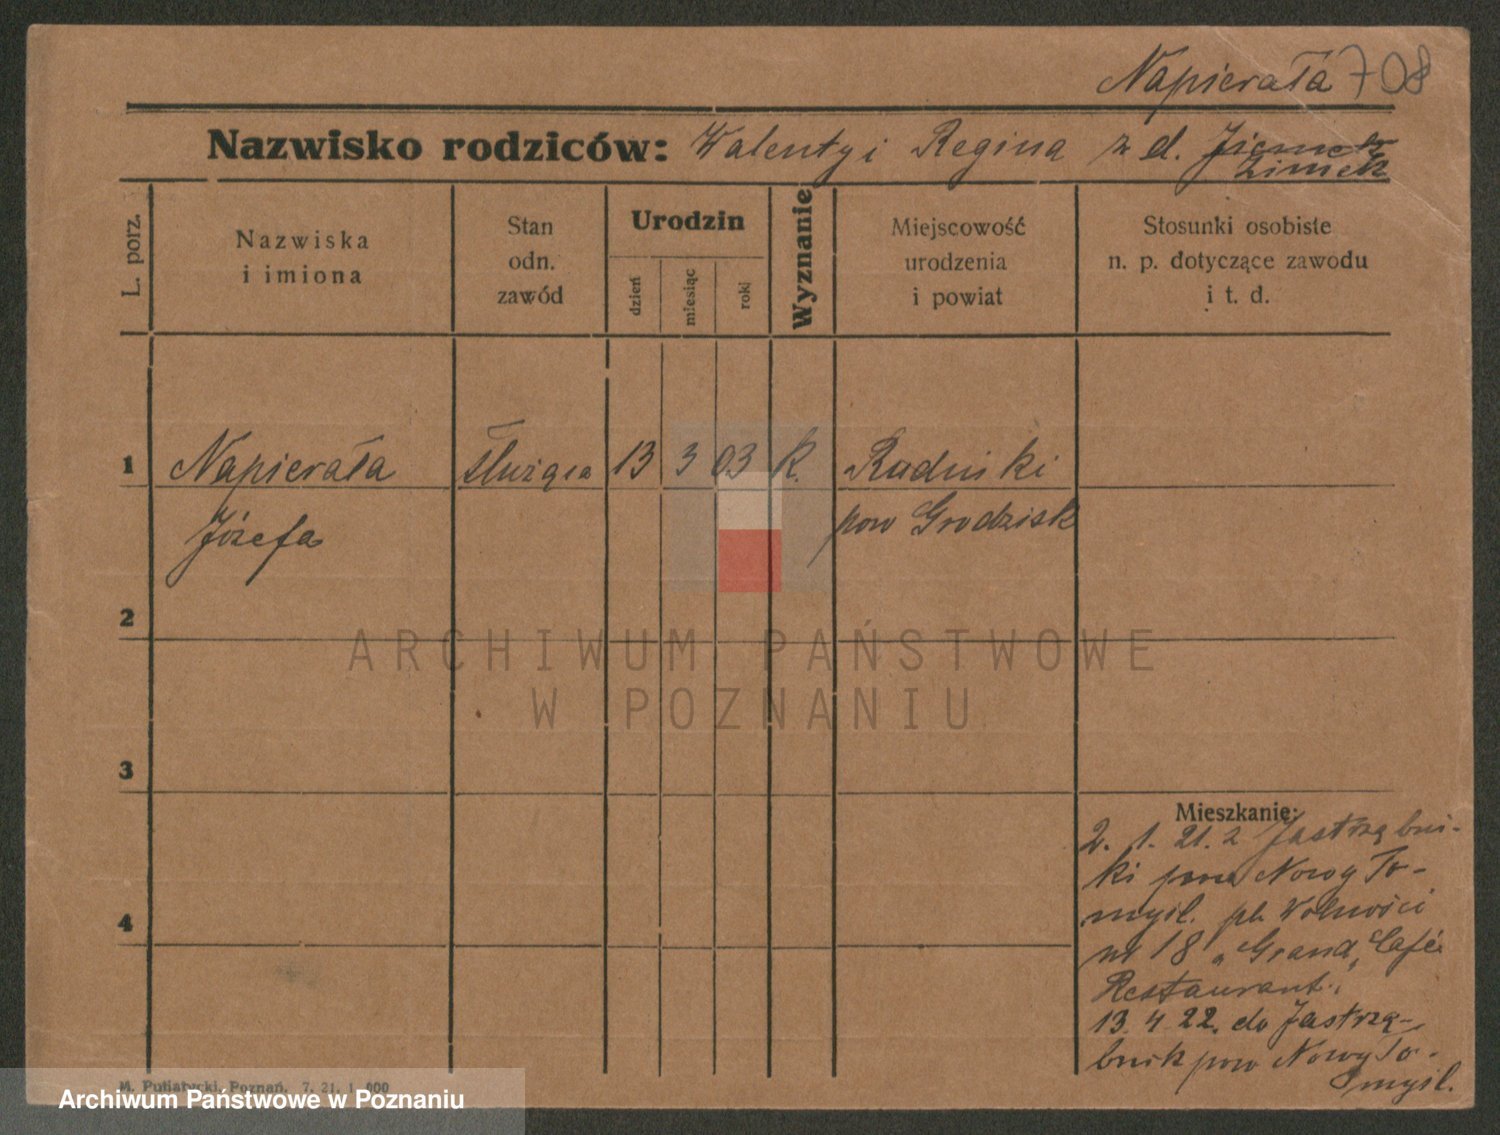 Napierała 708
Nazwisko rodziców: Walenty i Regina z d.
Zimek
L. porz.
Nazwiska
i imiona
Stan
odn.
zawód
Urodzin
dzień
miesiąc
rok
Wyznanie
Miejscowość
urodzenia
i powiat
Stosunki osobiste
n. p. dotyczące zawodu
i t. d.
1 Napierała służąca 13 3 03 k. Rudniki
Józefa pow Grodzisk
2
ARCHIWUM PAŃSTWOWE
W POZNANIU
3
Mieszkanie:
2. 1. 21. z Jastrzębni-
ki pow Nowy To-
myśl. pl. Wolności
nr 18 „Grand Café
Restaurant".
13. 4. 22. do Jastrzę-
bnik pow Nowy To-
myśl.
4
M. Putiatycki, Poznań. 7. 21. 1 000
Archiwum Państwowe w Poznaniu